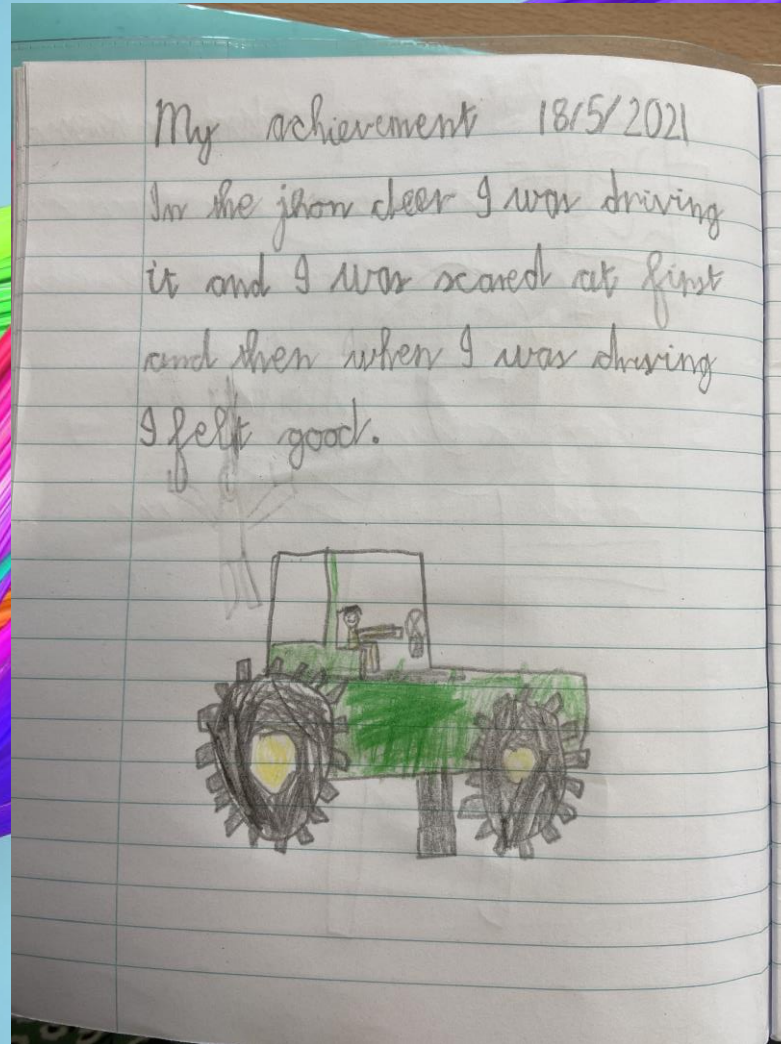 My achievement 18/5/2021
In the jhon deer I was driving
it and I was scared at first
and then when I was driving
I felt good.